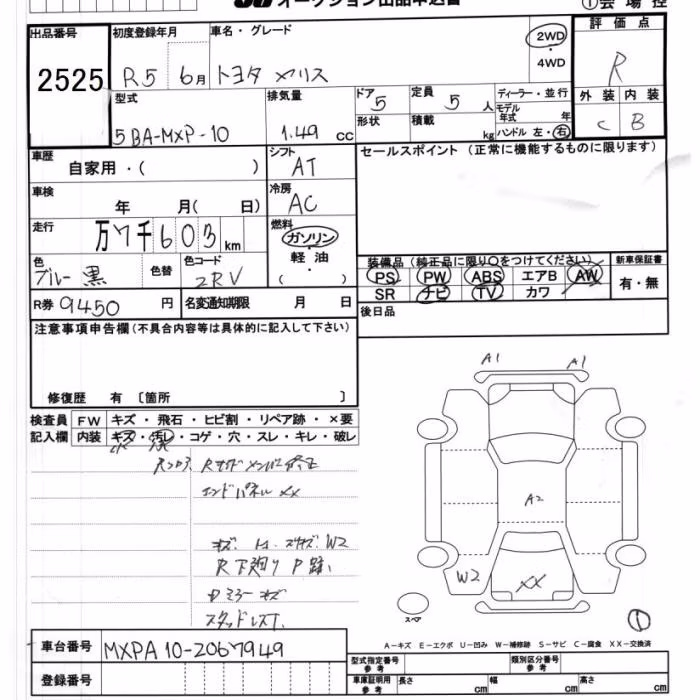 オークション出品申込書
①会場控
出品番号
2525
初度登録年月
R5 6月
車名・グレード
トヨタ ヤリス
2WD
・
4WD
評価点
R
型式
5BA-MXP-10
排気量
1.49 cc
ドア 5
定員 5 人
ディーラー・並行
形状
積載 kg
モデル年式 年
ハンドル 左・右
外装 内装
C B
車歴
自家用・( )
シフト
AT
セールスポイント(正常に機能するものに限ります)
車検
年 月( 日)
冷房
AC
走行
万7千603km
燃料
ガソリン
・
軽油
( ・ )
色
ブルー 黒
色替
色コード
2RV
装備品(純正品に限り○をつけてください)
PS PW ABS エアB AW
SR ナビ TV カワ
新車保証書
有・無
R券 9450 円
名変通知期限 月 日
後日品
注意事項申告欄(不具合内容等は具体的に記入して下さい)
修復歴 有 〔箇所 〕
検査員記入欄
FW キズ・飛石・ヒビ割・リペア跡・×要
内装 キズ・汚レ・コゲ・穴・スレ・キレ・破レ
エンドパネル XX
W2
A1 A1
A2
W2
XX
スペア
①
車台番号 MXPA10-2067949
登録番号
A-キズ E-エクボ U-凹み W-補修跡 S-サビ C-腐食 XX-交換済
型式指定番号 参考
類別区分番号 参考
車庫証明用 参考
長さ cm 幅 cm 高さ cm